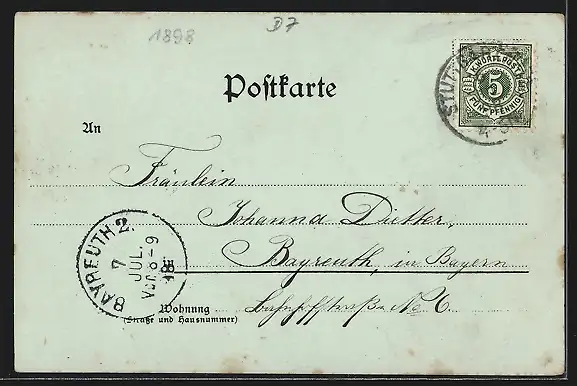 1898
D7
Postkarte
K. WÜRTT. POST
5
FÜNF PFENNIG
STUTTGART
An
Fräulein
Johanna Dietter,
Bayreuth, in Bayern
BAYREUTH 2.
7
JUL.
Vor. 8-9
98
Wohnung
(Straße und Hausnummer)
Bahnhofstraße No 6.